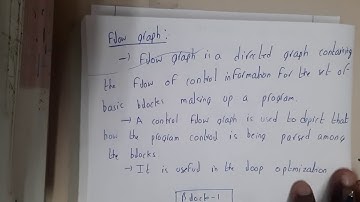 Flow graph:
→ Flow graph is a directed graph containing
the flow of control information for the set of
basic blocks making up a program.
→ A control flow graph is used to depict that
how the program control is being parsed among
the blocks.
→ It is useful in the loop optimization
Block-1